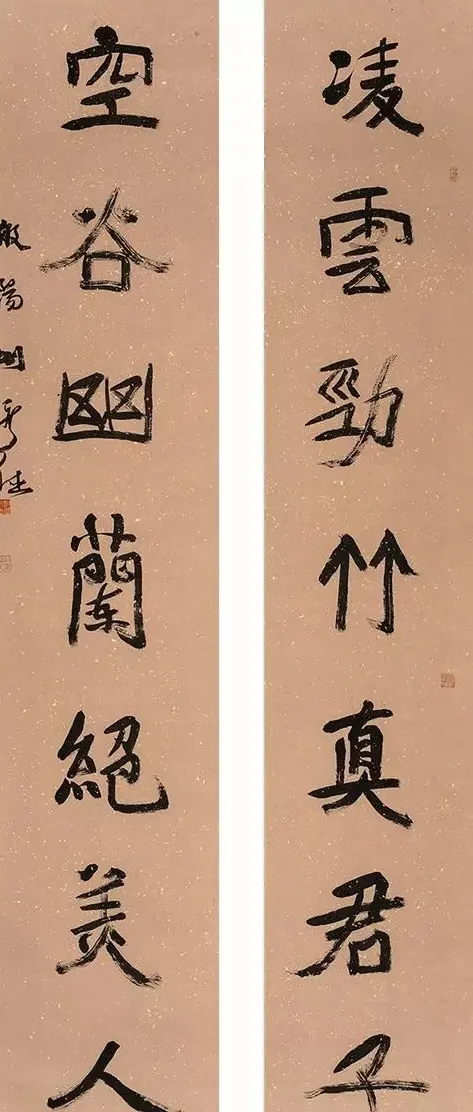 凌雲勁竹真君子
空谷幽蘭絕美人